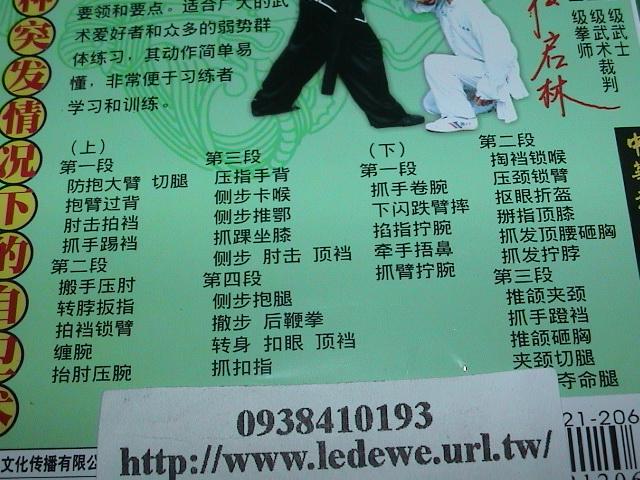 种突发情况下的自卫术
要领和要点。适合广大的武
术爱好者和众多的弱势群
体练习，其动作简单易
懂，非常便于习练者
学习和训练。
启林
级武士
级武术裁判
级拳师
（上）
第一段
防抱大臂 切腿
抱臂过背
肘击拍裆
抓手踢裆
第二段
搬手压肘
转脖扳指
拍裆锁臂
缠腕
抬肘压腕
第三段
压指手背
侧步卡喉
侧步推鄂
抓踝坐膝
侧步 肘击 顶裆
第四段
侧步抱腿
撤步 后鞭拳
转身 扣眼 顶裆
抓扣指
（下）
第一段
抓手卷腕
下闪跌臂摔
掐指拧腕
牵手捂鼻
抓臂拧腕
第二段
掏裆锁喉
压颈锁臂
抠眼折盔
掰指顶膝
抓发顶腰砸胸
抓发拧脖
第三段
推颌夹颈
抓手蹬裆
推颌砸胸
夹颈切腿
夺命腿
文化传播有限公
0938410193
http://www.ledewe.url.tw/
21-206